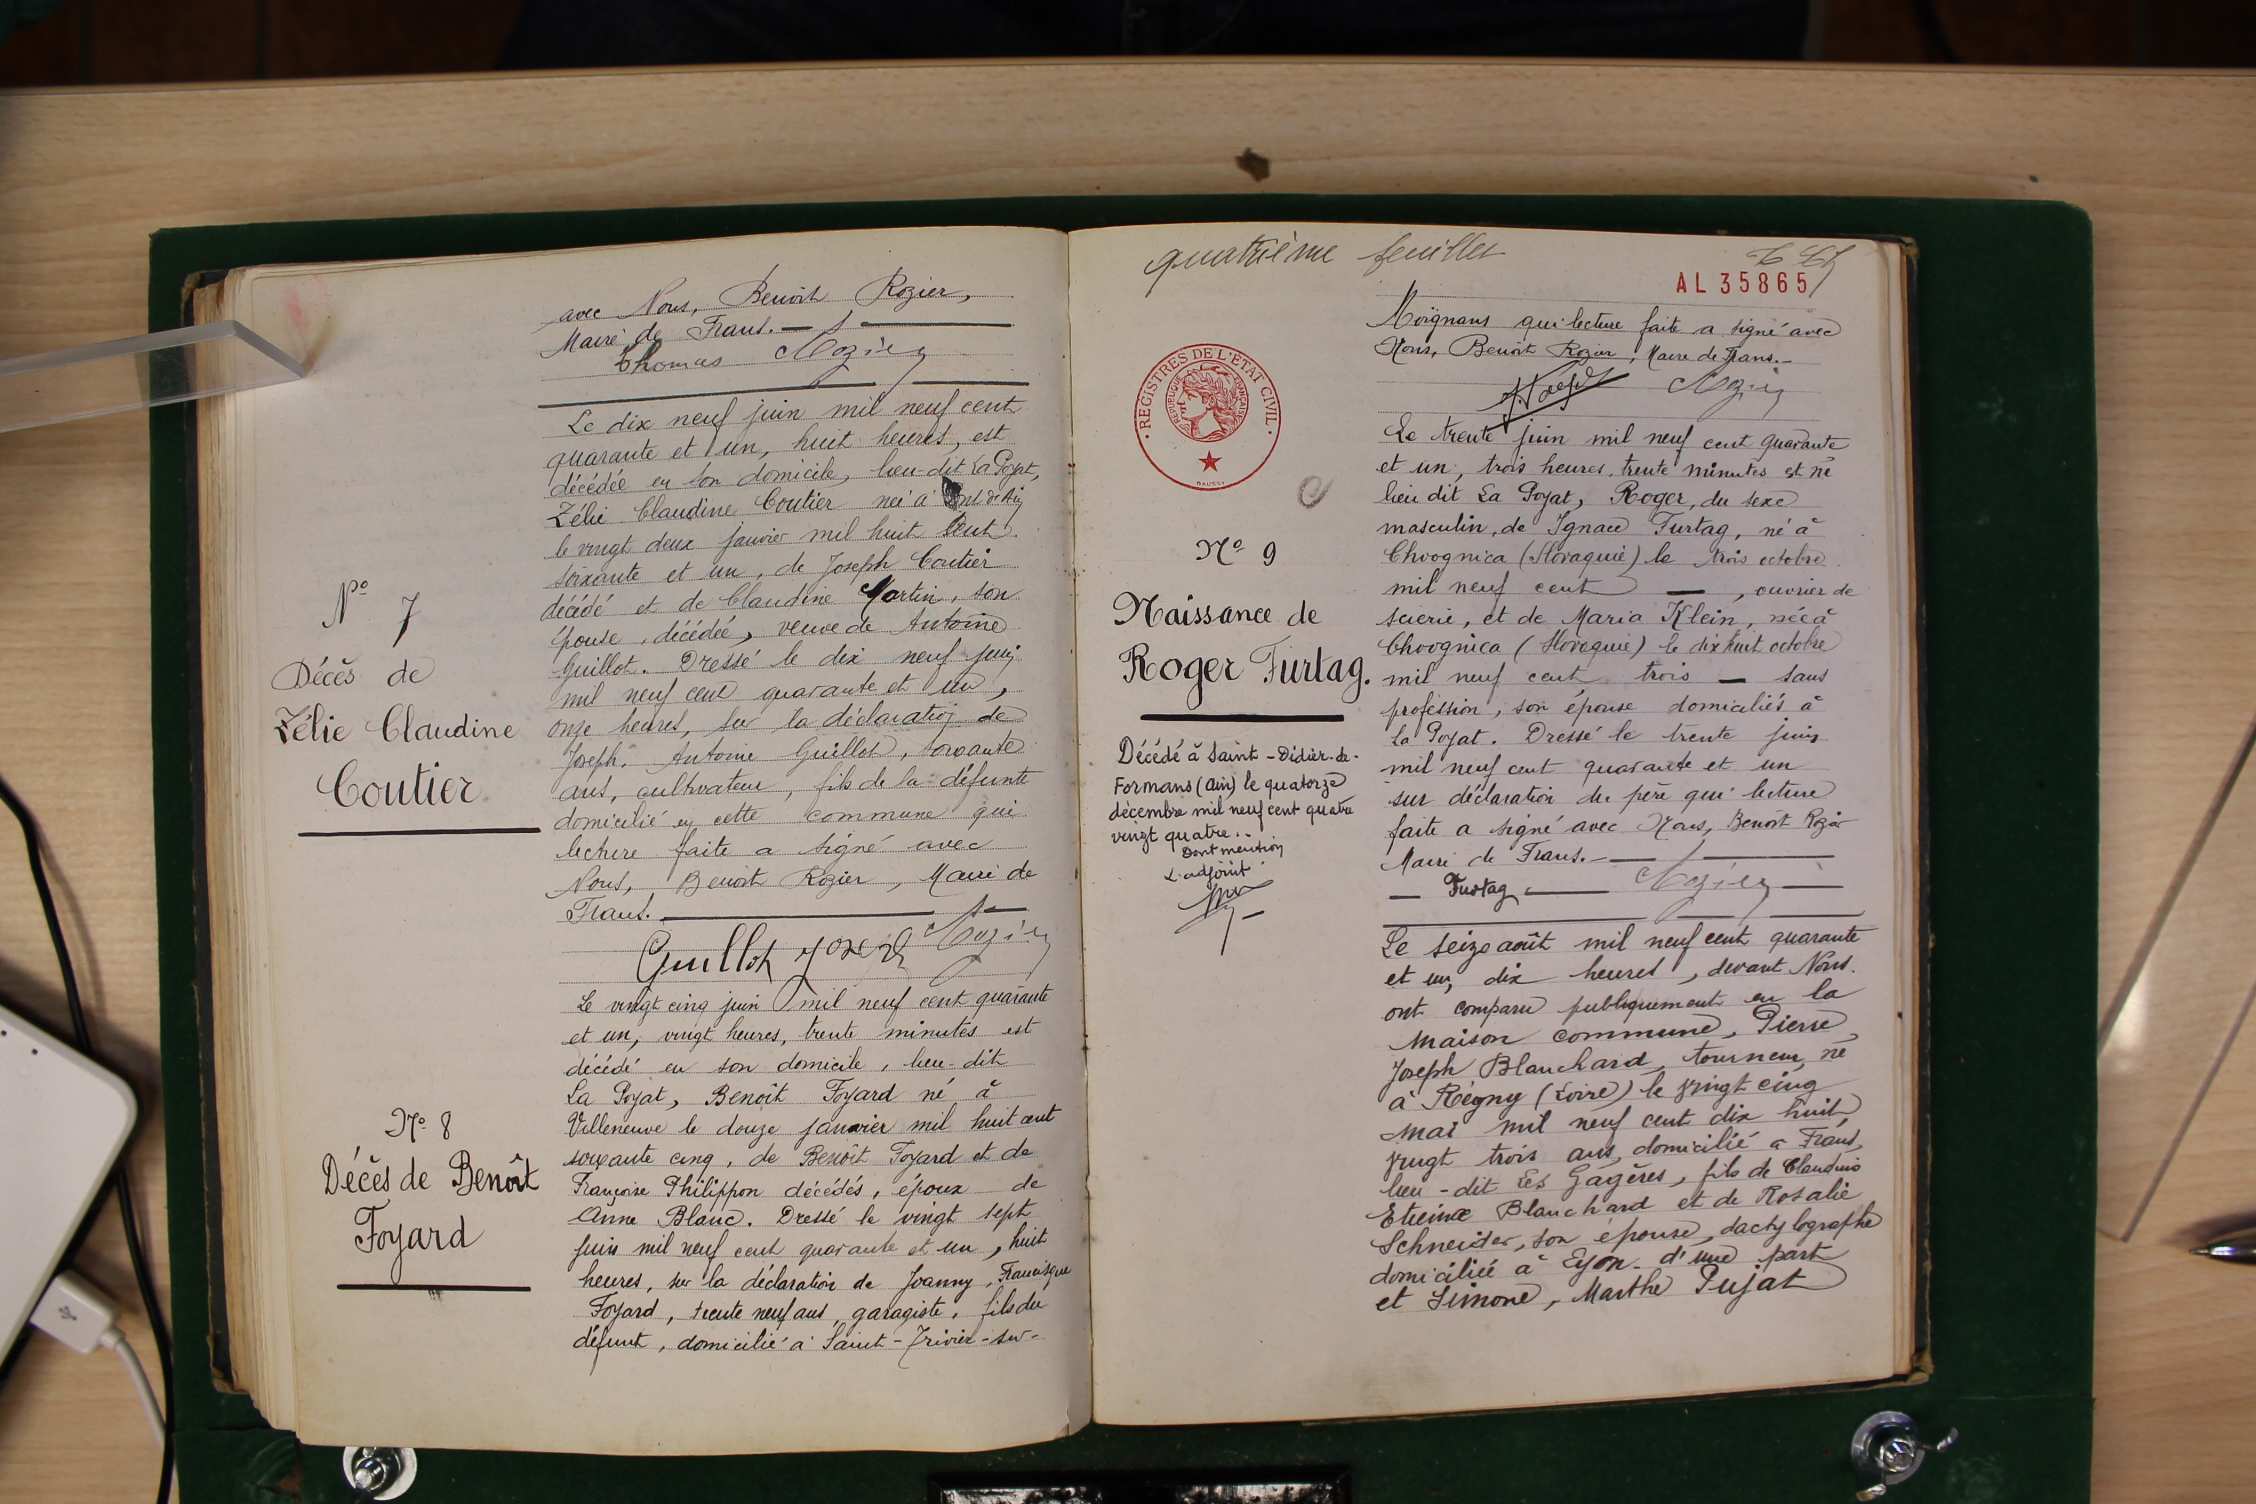 avec Nous, Benoît Rozier,
Maire de Frans.
Thomas Rozier
Le dix neuf juin mil neuf cent
quarante et un, huit heures, est
décédée en son domicile, lieu-dit La Poyat,
Zélie Claudine Coutier née à Pont d'Ain
le vingt deux janvier mil huit cent
soixante et un, de Joseph Coutier
décédé et de Claudine Martin, son
épouse, décédée, veuve de Antoine
Guillot. Dressé le dix neuf juin
mil neuf cent quarante et un,
onze heures, sur la déclaration de
Joseph, Antoine Guillot, soixante
ans, cultivateur, fils de la défunte
domicilié en cette commune qui
lecture faite a signé avec
Nous, Benoît Rozier, Maire de
Frans.
Guillot Joseph Rozier
Le vingt cinq juin mil neuf cent quarante
et un, vingt heures, trente minutes est
décédé en son domicile, lieu-dit
La Poyat, Benoît Foyard né à
Villeneuve le douze janvier mil huit cent
soixante cinq, de Benoît Foyard et de
Françoise Philippon décédés, époux de
Anne Blanc. Dressé le vingt sept
juin mil neuf cent quarante et un, huit
heures, sur la déclaration de Joanny, Francisque
Foyard, trente neuf ans, garagiste, fils du
défunt, domicilié à Saint-Trivier-sur-
N° 7
Décès de
Zélie Claudine
Coutier
N° 8
Décès de Benoît
Foyard
quatrième feuillet
AL 35865
REGISTRES DE L'ÉTAT CIVIL
RÉPUBLIQUE FRANÇAISE
N° 9
Naissance de
Roger Furtag.
Décédé à Saint-Didier-de-
Formans (Ain) le quatorze
décembre mil neuf cent quatre
vingt quatre.
Dont mention
L'adjoint
Moignans qui lecture faite a signé avec
Nous, Benoît Rozier, Maire de Frans.
Rozier
Le trente juin mil neuf cent quarante
et un, trois heures, trente minutes est né
lieu dit La Poyat, Roger, du sexe
masculin, de Ignace Furtag, né à
Chvognica (Slovaquie) le trois octobre
mil neuf cent —, ouvrier de
scierie, et de Maria Klein, née à
Chvognica (Slovaquie) le dix huit octobre
mil neuf cent trois — sans
profession, son épouse domiciliés à
La Poyat. Dressé le trente juin
mil neuf cent quarante et un
sur déclaration du père qui lecture
faite a signé avec Nous, Benoît Rozier
Maire de Frans.
Furtag Rozier
Le seize août mil neuf cent quarante
et un, dix heures, devant Nous.
ont comparu publiquement en la
maison commune, Pierre,
Joseph Blanchard, tourneur, né
à Régny (Loire) le vingt cinq
mai mil neuf cent dix huit,
vingt trois ans, domicilié à Frans,
lieu-dit Les Gagères, fils de Claudius
Etienne Blanchard et de Rosalie
Schneider, son épouse, dactylographe
domiciliée à Lyon. d'une part
et Simone, Marthe Pujat